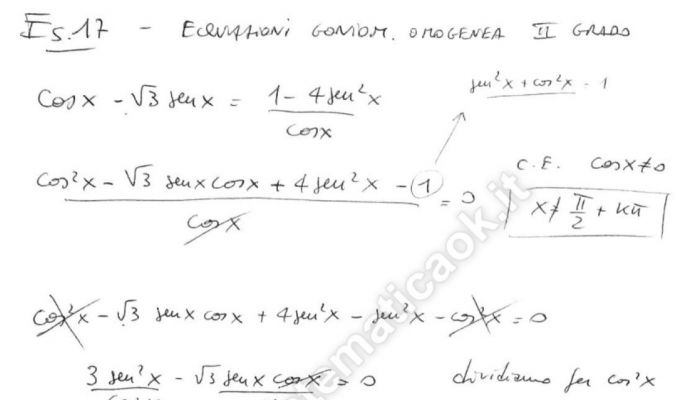 Es.17 - EQUAZIONI GONIOM. OMOGENEA II GRADO
cosx - √3 senx = 1 - 4sen²x / cosx
sen²x + cos²x = 1
cos²x - √3 senx cosx + 4sen²x - 1 / cosx = 0
C.E. cosx ≠ 0
x ≠ π/2 + kπ
cos²x - √3 senx cosx + 4sen²x - sen²x - cos²x = 0
3sen²x - √3 senx cosx = 0 dividiamo per cos²x
tematicaok.it